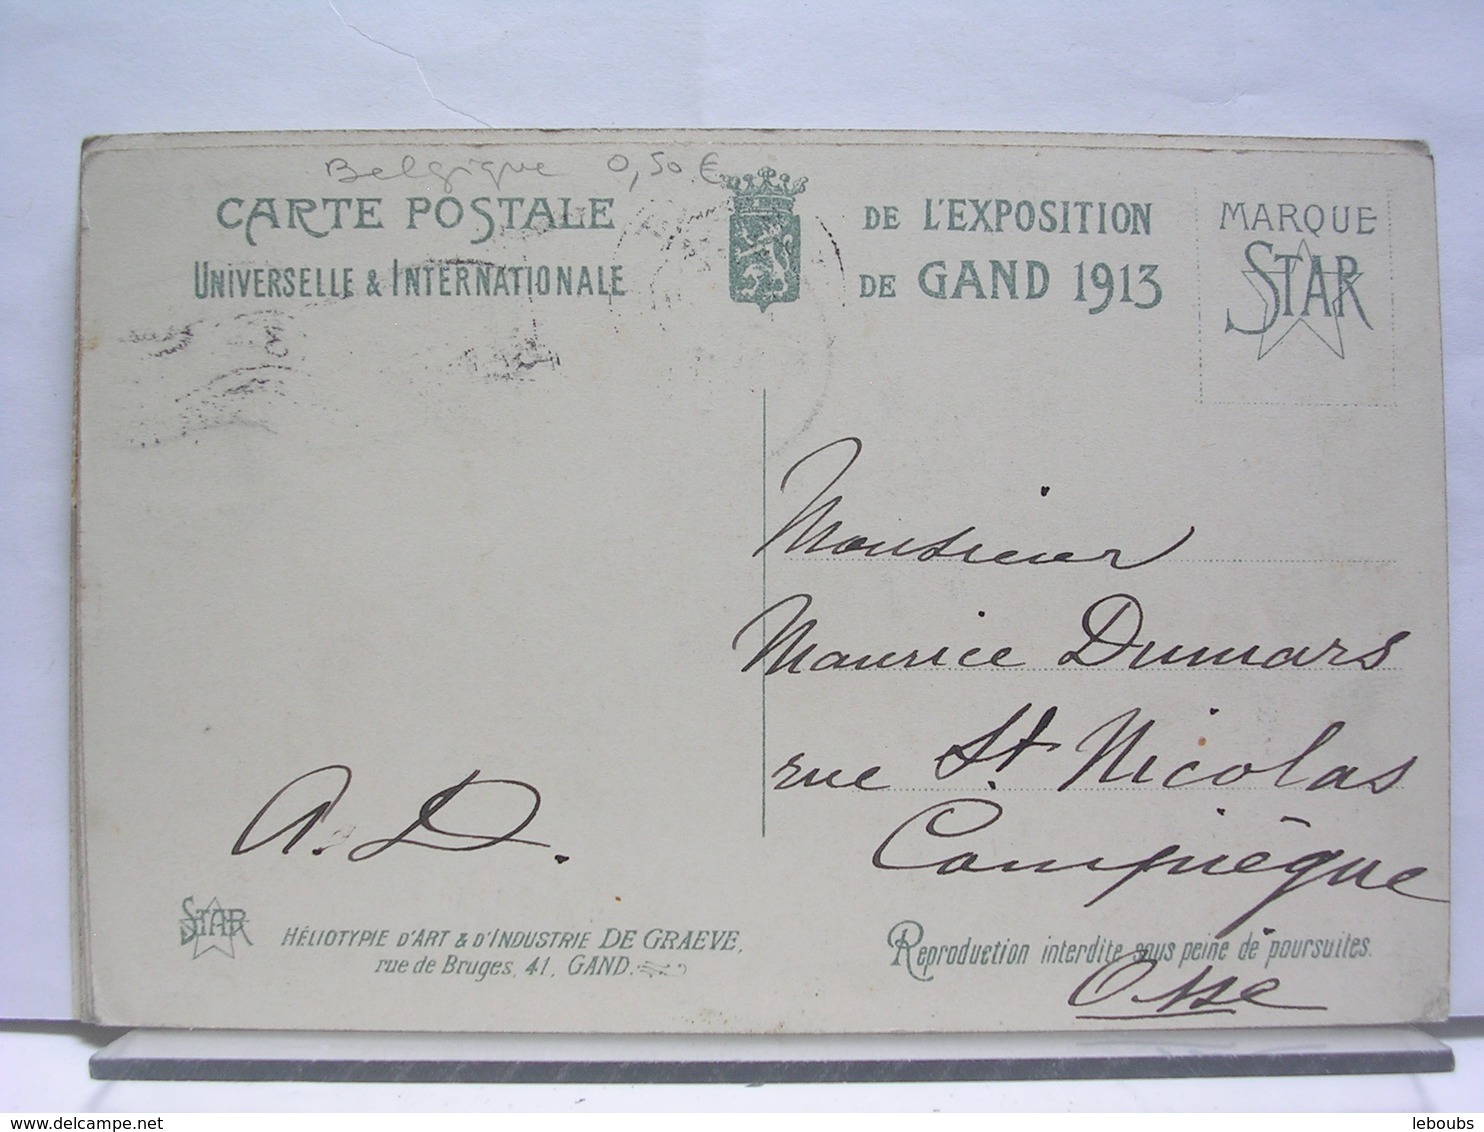 Belgique 0,50 €
CARTE POSTALE
UNIVERSELLE & INTERNATIONALE
DE L'EXPOSITION
DE GAND 1913
MARQUE
STAR
Monsieur
Maurice Dumars
rue St. Nicolas
Compiègne
Oise
A. D.
STAR
HÉLIOTYPIE D'ART & D'INDUSTRIE DE GRAEVE,
rue de Bruges, 41, GAND.
Reproduction interdite sous peine de poursuites.
delcampe.net
leboubs